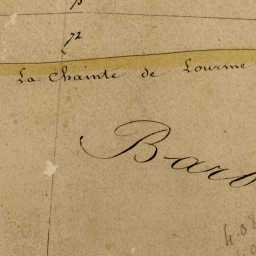 72
La Chainte de Lourme
Barb